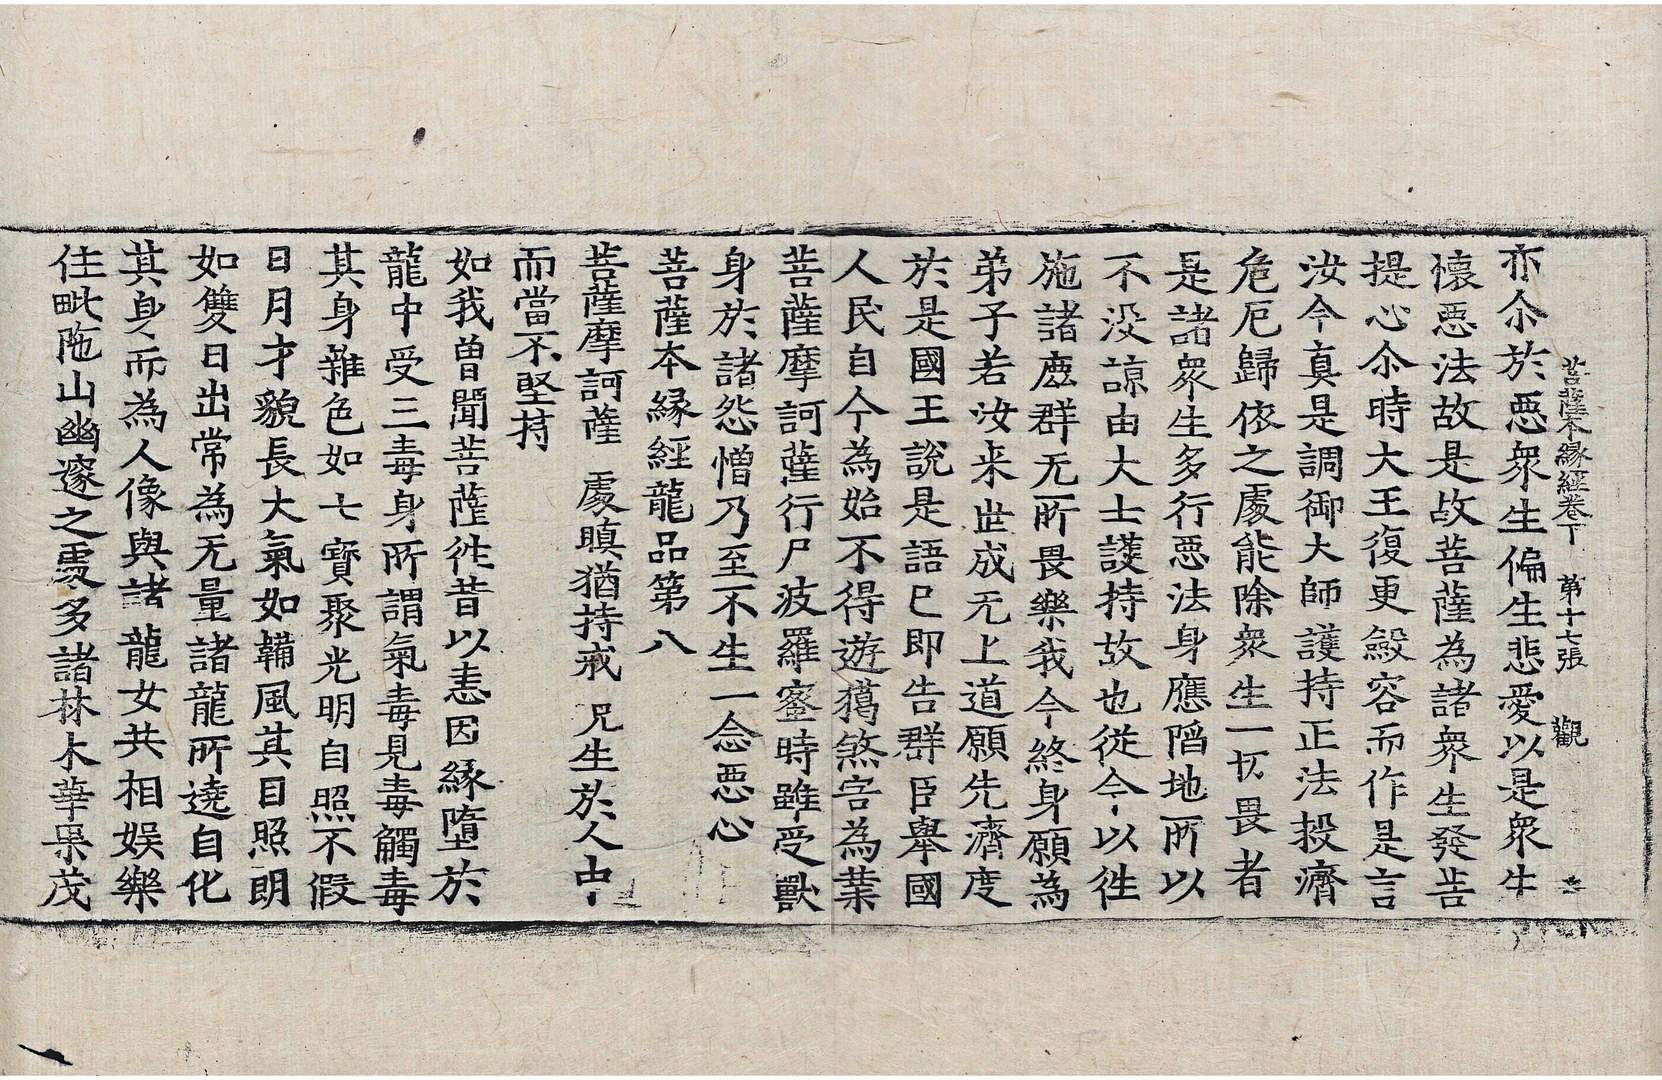 菩薩本縁經卷下　第十七張　觀
亦尒於惡衆生偏生悲愛以是衆生
懷惡法故是故菩薩為諸衆生發菩
提心尒時大王復更斂容而作是言
汝今真是調御大師護持正法投濟
危厄歸依之處能除衆生一切畏者
是諸衆生多行惡法身應陷地所以
不没諒由大士護持故也從今以往
施諸鹿群无所畏樂我今終身願為
弟子若汝来世成无上道願先濟度
於是國王說是語已即告群臣舉國
人民自今為始不得遊獦煞害為業
菩薩摩訶薩行尸波羅蜜時雖受獸
身於諸怨憎乃至不生一念惡心
菩薩本縁經龍品第八
菩薩摩訶薩　處瞋猶持戒　況生於人中
而當不堅持
如我曾聞菩薩往昔以恚因縁墮於
龍中受三毒身所謂氣毒見毒觸毒
其身雜色如七寶聚光明自照不假
日月才貌長大氣如韛風其目照朗
如雙日出常為无量諸龍所遶自化
其身而為人像與諸龍女共相娛樂
住毗陁山幽邃之處多諸林木華果茂